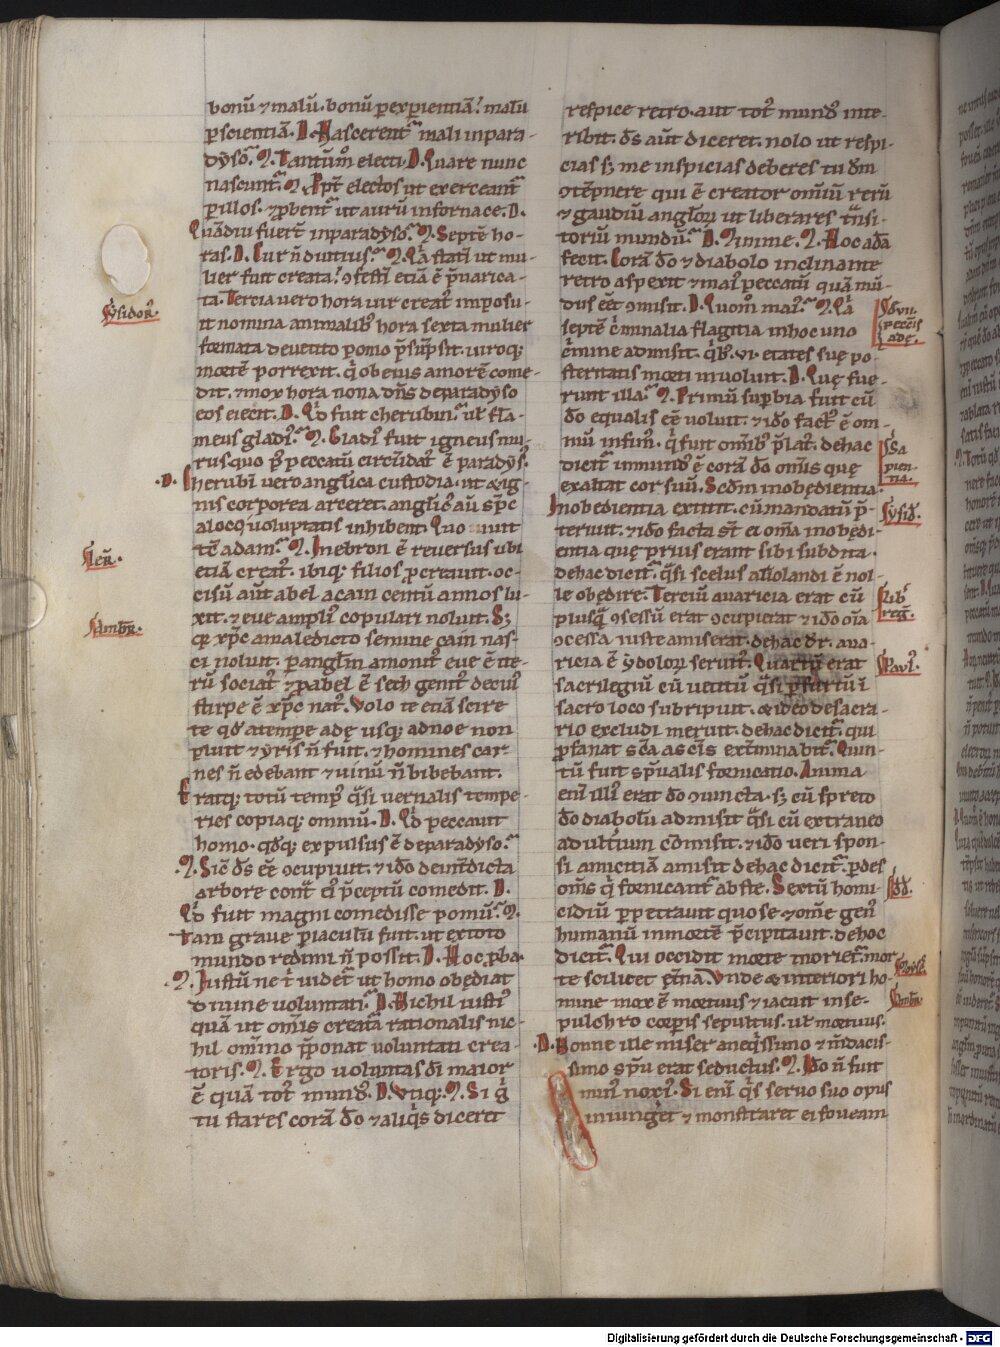 bonū ⁊ malū. bonū ꝑ expientiā. malū
ꝑ scientiā. D. Nascerent mali in para-
dyso. M. Tantūm electi. D. Quare nunc
nascunt. M. Ppt electos ut exerceant
ꝑ illos. ⁊ ꝓbent ut aurū in fornace. D.
Quādiu fuert in paradyso. M. Septē ho-
ras. D. Cur n̄ diutius. M. Qa statī ut mu-
lier fuit creata. ꝯfestī etiā ē p̄uarica-
ta. Tercia uero hora uir creat imposu-
it nomina animalib hora sexta mulier
formata de uetito pomo p̄sūpsit. uiroq;
mortē porrexit. q̇ ob eius amorē come-
dit. ⁊ mox hora nona dn̄s de paradyso
eos eiecit. D. Qd fuit cherubin. ul fla-
meus gladi. M. Gladi fuit igneus mu-
rus quo p peccatū circūdat ē paradys.
D. Cherubī uero anglica custodia. ut & ig-
nis corporea arceret. anglic aū sp̄c
a loco uoluptatis inhibent. Quo iuit
tē adam. M. In ebron ē reuersus ubi
etiā creat. ibiq; filios ꝓcreauit. oc-
cisū aut abel a cain centū annos lu-
xit. ⁊ eue ampli copulari noluit. Sȝ
qꝛ xp̄c a maledicto semine cain nas-
ci noluit. ꝑ anglm amonit eue ē ite-
rū sociat ⁊ ꝓ abel ē seth genit de cui
stirpe ē xp̄c nat. Volo te etiā scire
te qd a tempe adę usq; ad noe non
pluit ⁊ yris n̄ fuit. ⁊ homines car-
nes n̄ edebant ⁊ uinū n̄ bibebant.
Eratq; totū temp q̇si uernalis tempe-
ries copiaq; omniū. D. Qd peccauit
homo. qdq; expulsus ē de paradyso.
M. Sic ds ēē ꝯcupiuit. ⁊ ido de int̄dicta
arbore cont ei p̄ceptū comedit. D.
Qd fuit magni comedisse pomū. M.
Tam graue piaculū fuit. ut ex toto
mundo redimi n̄ possit. D. Hoc ꝓba.
M. Iustū ne t uidet ut homo obędiat
diuine uoluntati. D. Nichil iusti
quā ut om̄is creata rationalis nic-
hil om̄ino p̄ponat uoluntati crea-
toris. M. Ergo uoluntas di maior
ē quā tot mund. D. Vtiq;. M. Si g
tu stares corā do ⁊ aliq̇s diceret
respice retro. aut tot mund inte-
ribit. ds aūt diceret. nolo ut respi-
cias sȝ me inspicias deberes tu dm
ꝯtēpnere qui ē creator om̄iū rerū
⁊ gaudiū anglorū ut liberares tnsi-
toriū mundū. D. Minime. M. Hoc adā
fecit. Corā do ⁊ diabolo inclinante
retro aspexit ⁊ mai peccatū quā mū-
dus ēēt ꝯmisit. D. Quom mai. M. Qa
septē c̄minalia flagitia in hoc uno
c̄mine admisit. q̇b. vi. etates suę po-
steritatis morti inuoluit. D. Quę fue-
runt illa. M. Primū supbia fuit cū
do equalis ēē uoluit. ⁊ ido fact ē om-
niū infim. q̇ fuit om̄ib p̄lat. de hac
dicit inmund ē corā do om̄is quę
exaltat cor suū. Scdm inobędientia.
Inobedientia extitit. cū mandatū p̄-
teriuit. ⁊ ido facta st ei om̄ia inobędi-
entia quę prius erant sibi subdita.
de hac dicit. q̇si scelus ariolandi ē nol-
le obędire. Terciū auaricia erat cū
plusq ꝯcessū erat ꝯcupierat ⁊ ido om̄ia
ꝯcessa iuste amiserat. de hac dr. aua-
ricia ē ydolorū seruit. Quartū erat
sacrilegiū cū uetitū q̇si p furtū ī
sacro loco subripuit. & ideo de sacra-
rio excludi meruit. de hac dicit. qui
ꝓfanat sc̄a a sc̄is ext̄minabit. Quin-
tū fuit sp̄ualis fornicatio. Anima
eni illi erat do ꝯiuncta. sȝ cū spreto
do diabolū admisit q̇si cū extraneo
adultiū cōmisit. ⁊ ido ueri spon-
si amicitiā amisit de hac dicit. ꝑdes
om̄s q̇ fornicant abste. Sextū homi-
cidiū ꝑpetrauit quo se ⁊ om̄e gen
humanū in mortē p̄cipitauit. de hoc
dicit. Qui occidit morte moriet. mor-
te scilicet et̄na. Vnde & interiori ho-
mine mox ē mortuus ⁊ iacuit in se-
pulchro corpis sepultus. ul mortuus.
D. Nonne ille miser a neqissimo ⁊ m̄dacis-
simo sp̄u erat seductus. M. Ido n̄ fuit
min noxi. Si eni q̇s seruo suo opus
iniunget ⁊ monstraret ei foueam
Ysidor.
Ier.
Ambr.
Ysid.
Pauł.
Ambr.
Digitalisierung gefördert durch die Deutsche Forschungsgemeinschaft - DFG